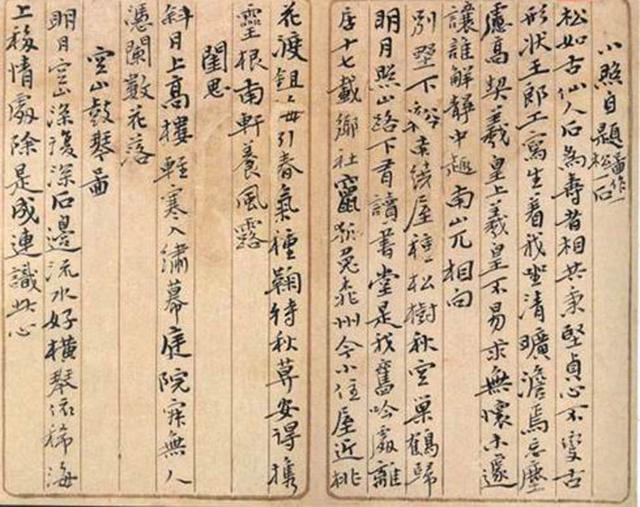 小照自題 畫作松石
松如古仙人石為壽者相共秉堅貞心不變古
形狀王郎工寫生着我坐清曠澹焉忘塵
慮高契羲皇上羲皇不易求無懷未遽
讓誰解靜中趣南山兀相向
別墅下屋種松樹秋空巢鶴歸
明月照山路下有讀書堂是我舊吟處離
居十七載鄉社竄兔州今小住屋近桃
花渡鉏引春氣種鞠待秋莫安得攜
靈根南軒養風露
閨思
斜日上高樓輕寒入繡幕庭院寂無人
憑闌數花落
空山鼓琴圖
明月空山深復深石邊流水好橫琴依稀海
上移情處除是成連識此心